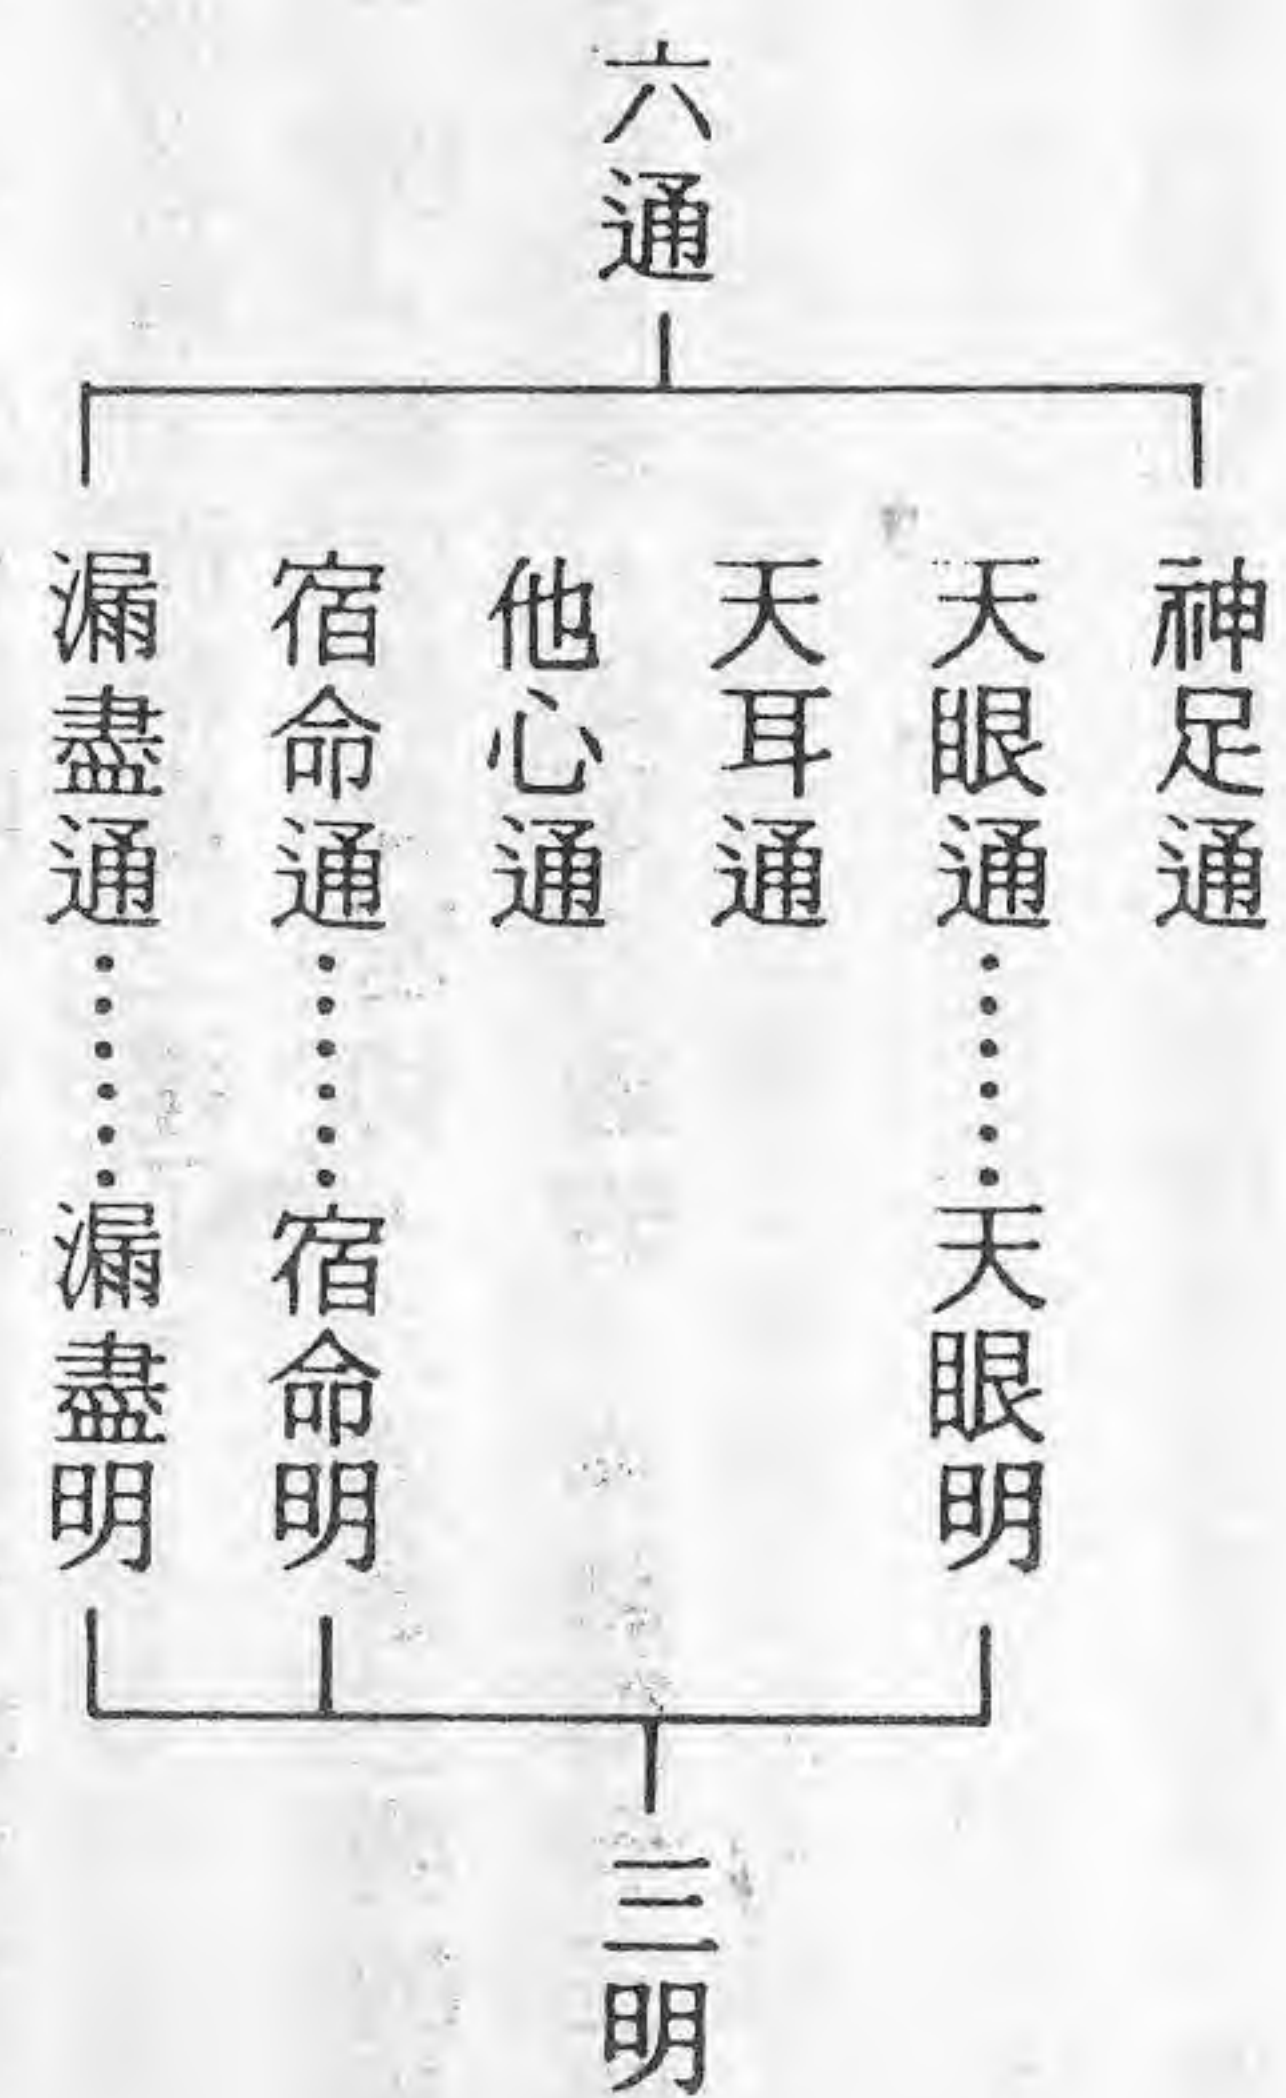 六通
神足通
天眼通……天眼明
天耳通
他心通
宿命通……宿命明
漏盡通……漏盡明
三明